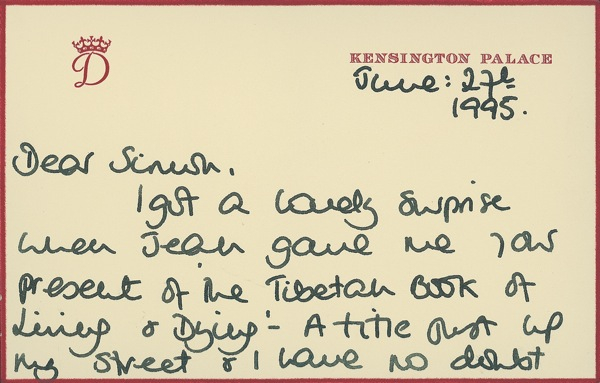 D
KENSINGTON PALACE
June: 27th
1995.
Dear
I got a lovely surprise
when Jean gave me your
present of 'The Tibetan Book of
Living & Dying' - A title just up
my street & I have no doubt